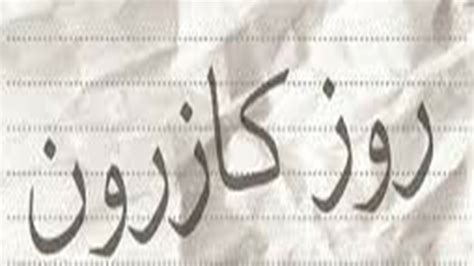 روز کازرون